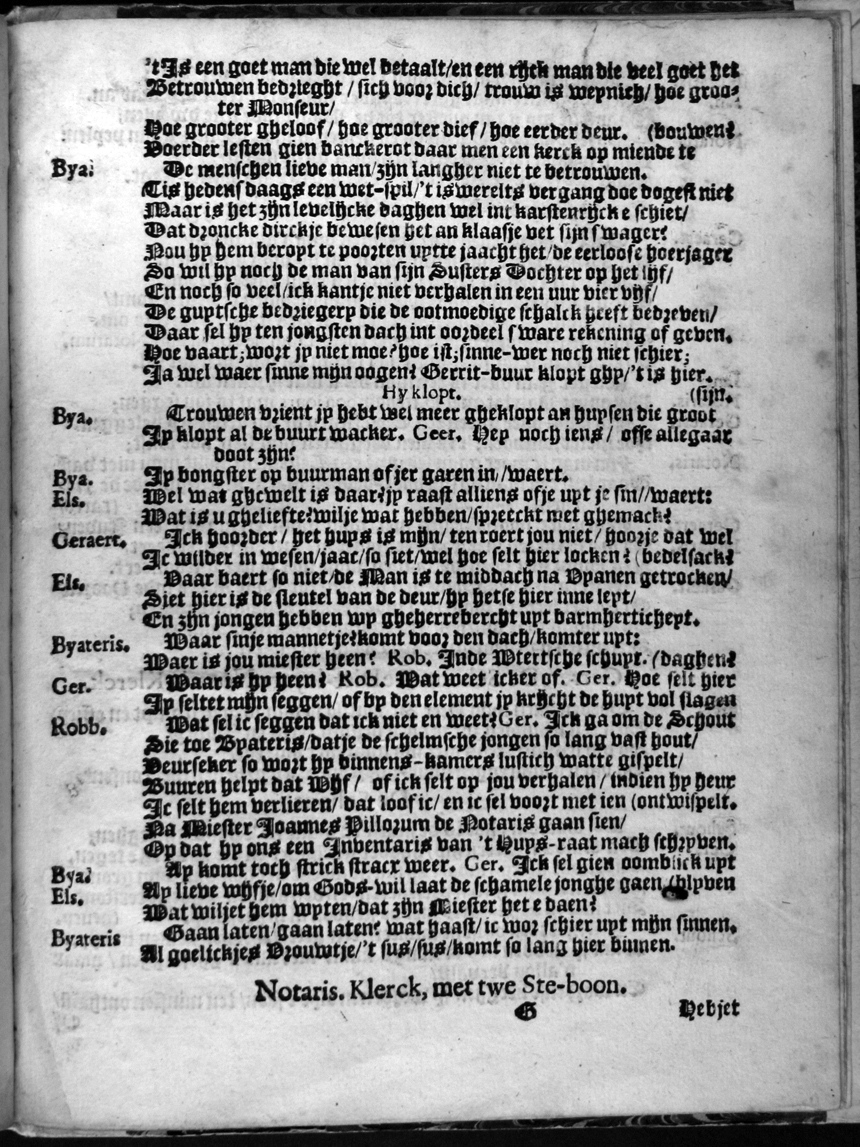 'tIs een goet man die wel betaalt/en een rijck man die veel goet het
Betrouwen bedrieght / sich voor dich/ trouw is weynich/ hoe groo-
ter Monseur/
Hoe grooter gheloof/ hoe grooter dief/ hoe eerder deur. (bouwen?
Voerder lesten gien banckerot daar men een kerck op miende te
Bya: De menschen lieve man/zijn langher niet te betrouwen.
Tis hedensdaags een wet-spil/'t is werelts vergang doe dogest niet
Maar is het zijn levelijcke daghen wel int karstenrijck e schiet/
Dat droncke dirckje bewesen het an klaasje vet sijn swager?
Nou hy hem beropt te poorten uytte jaacht het/de eerloose hoerjager
So wil hy noch de man van sijn Susters Dochter op het lijf/
En noch so veel/ick kantje niet verhalen in een uur vier vijf/
De guytsche bedriegery die de ootmoedige schalck heeft bedreven/
Daar sel hy ten jongsten dach int oordeel sware rekening of geven.
Hoe vaart; wort jy niet moe? hoe ist; sinne-wer noch niet schier;
Ja wel waer sinne mijn oogen? Gerrit-buur klopt ghy/'t is hier.
Hy klopt. (sijn.
Bya. Trouwen vrient jy hebt wel meer gheklopt an huysen die groot
Jy klopt al de buurt wacker. Geer. Hey noch iens/ offe allegaar
doot zijn?
Bya. Jy bongster op buurman of jer garen in//waert.
Els. Wel wat ghewelt is daar? jy raast alliens ofje uyt je sin//waert:
Wat is u gheliefte? wilje wat hebben/spreeckt met ghemack?
Geraert. Ick hoorder/ het huys is mijn/ ten roert jou niet/ hoorje dat wel
Ic wilder in wesen/jaac/so siet/wel hoe selt hier locken? (bedelsack?
Els. Daar baert so niet/de Man is te middach na Vyanen getrocken/
Siet hier is de sleutel van de deur/hy hetse hier inne leyt/
En zijn jongen hebben wy gheherrebercht uyt barmhertichept.
Byateris. Waar sinje mannetje? komt voor den dach/komter uyt:
Waer is jou miester heen? Rob. Inde Wtertsche schuyt. (daghen?
Ger. Waar is hy heen? Rob. Wat weet icker of. Ger. Hoe selt hier
Jy seltet mijn seggen/ of by den element jy krijcht de huyt vol slagen
Robb. Wat sel ic seggen dat ick niet en weet? Ger. Ick ga om de Schout
Sie toe Byateris/datje de schelmsche jongen so lang vast hout/
Veurseker so wort hy binnens-kamers lustich watte gispelt/
Buuren helpt dat Wijf/ of ick selt op jou verhalen / indien hy heur
Ic selt hem verlieren/ dat loof ic/ en ic sel voort met ien (ontwispelt.
Na Miester Joannes Pillorum de Notaris gaan sien/
Op dat hy ons een Inventaris van 't Huys-raat mach schryven.
Bya? Ay komt toch strick stracx weer. Ger. Ick sel gien oomblick uyt
Els. Ay lieve wijfje/om Gods-wil laat de schamele jonghe gaen (blyven
Wat wiljet hem wyten/dat zijn Miester het e daen?
Byateris Gaan laten/gaan laten? wat haast/ic wor schier uyt mijn sinnen.
Al goelickjes Vrouwtje/'t sus/sus/komt so lang hier binnen.
Notaris. Klerck, met twe Ste-boon.
G Hebjet